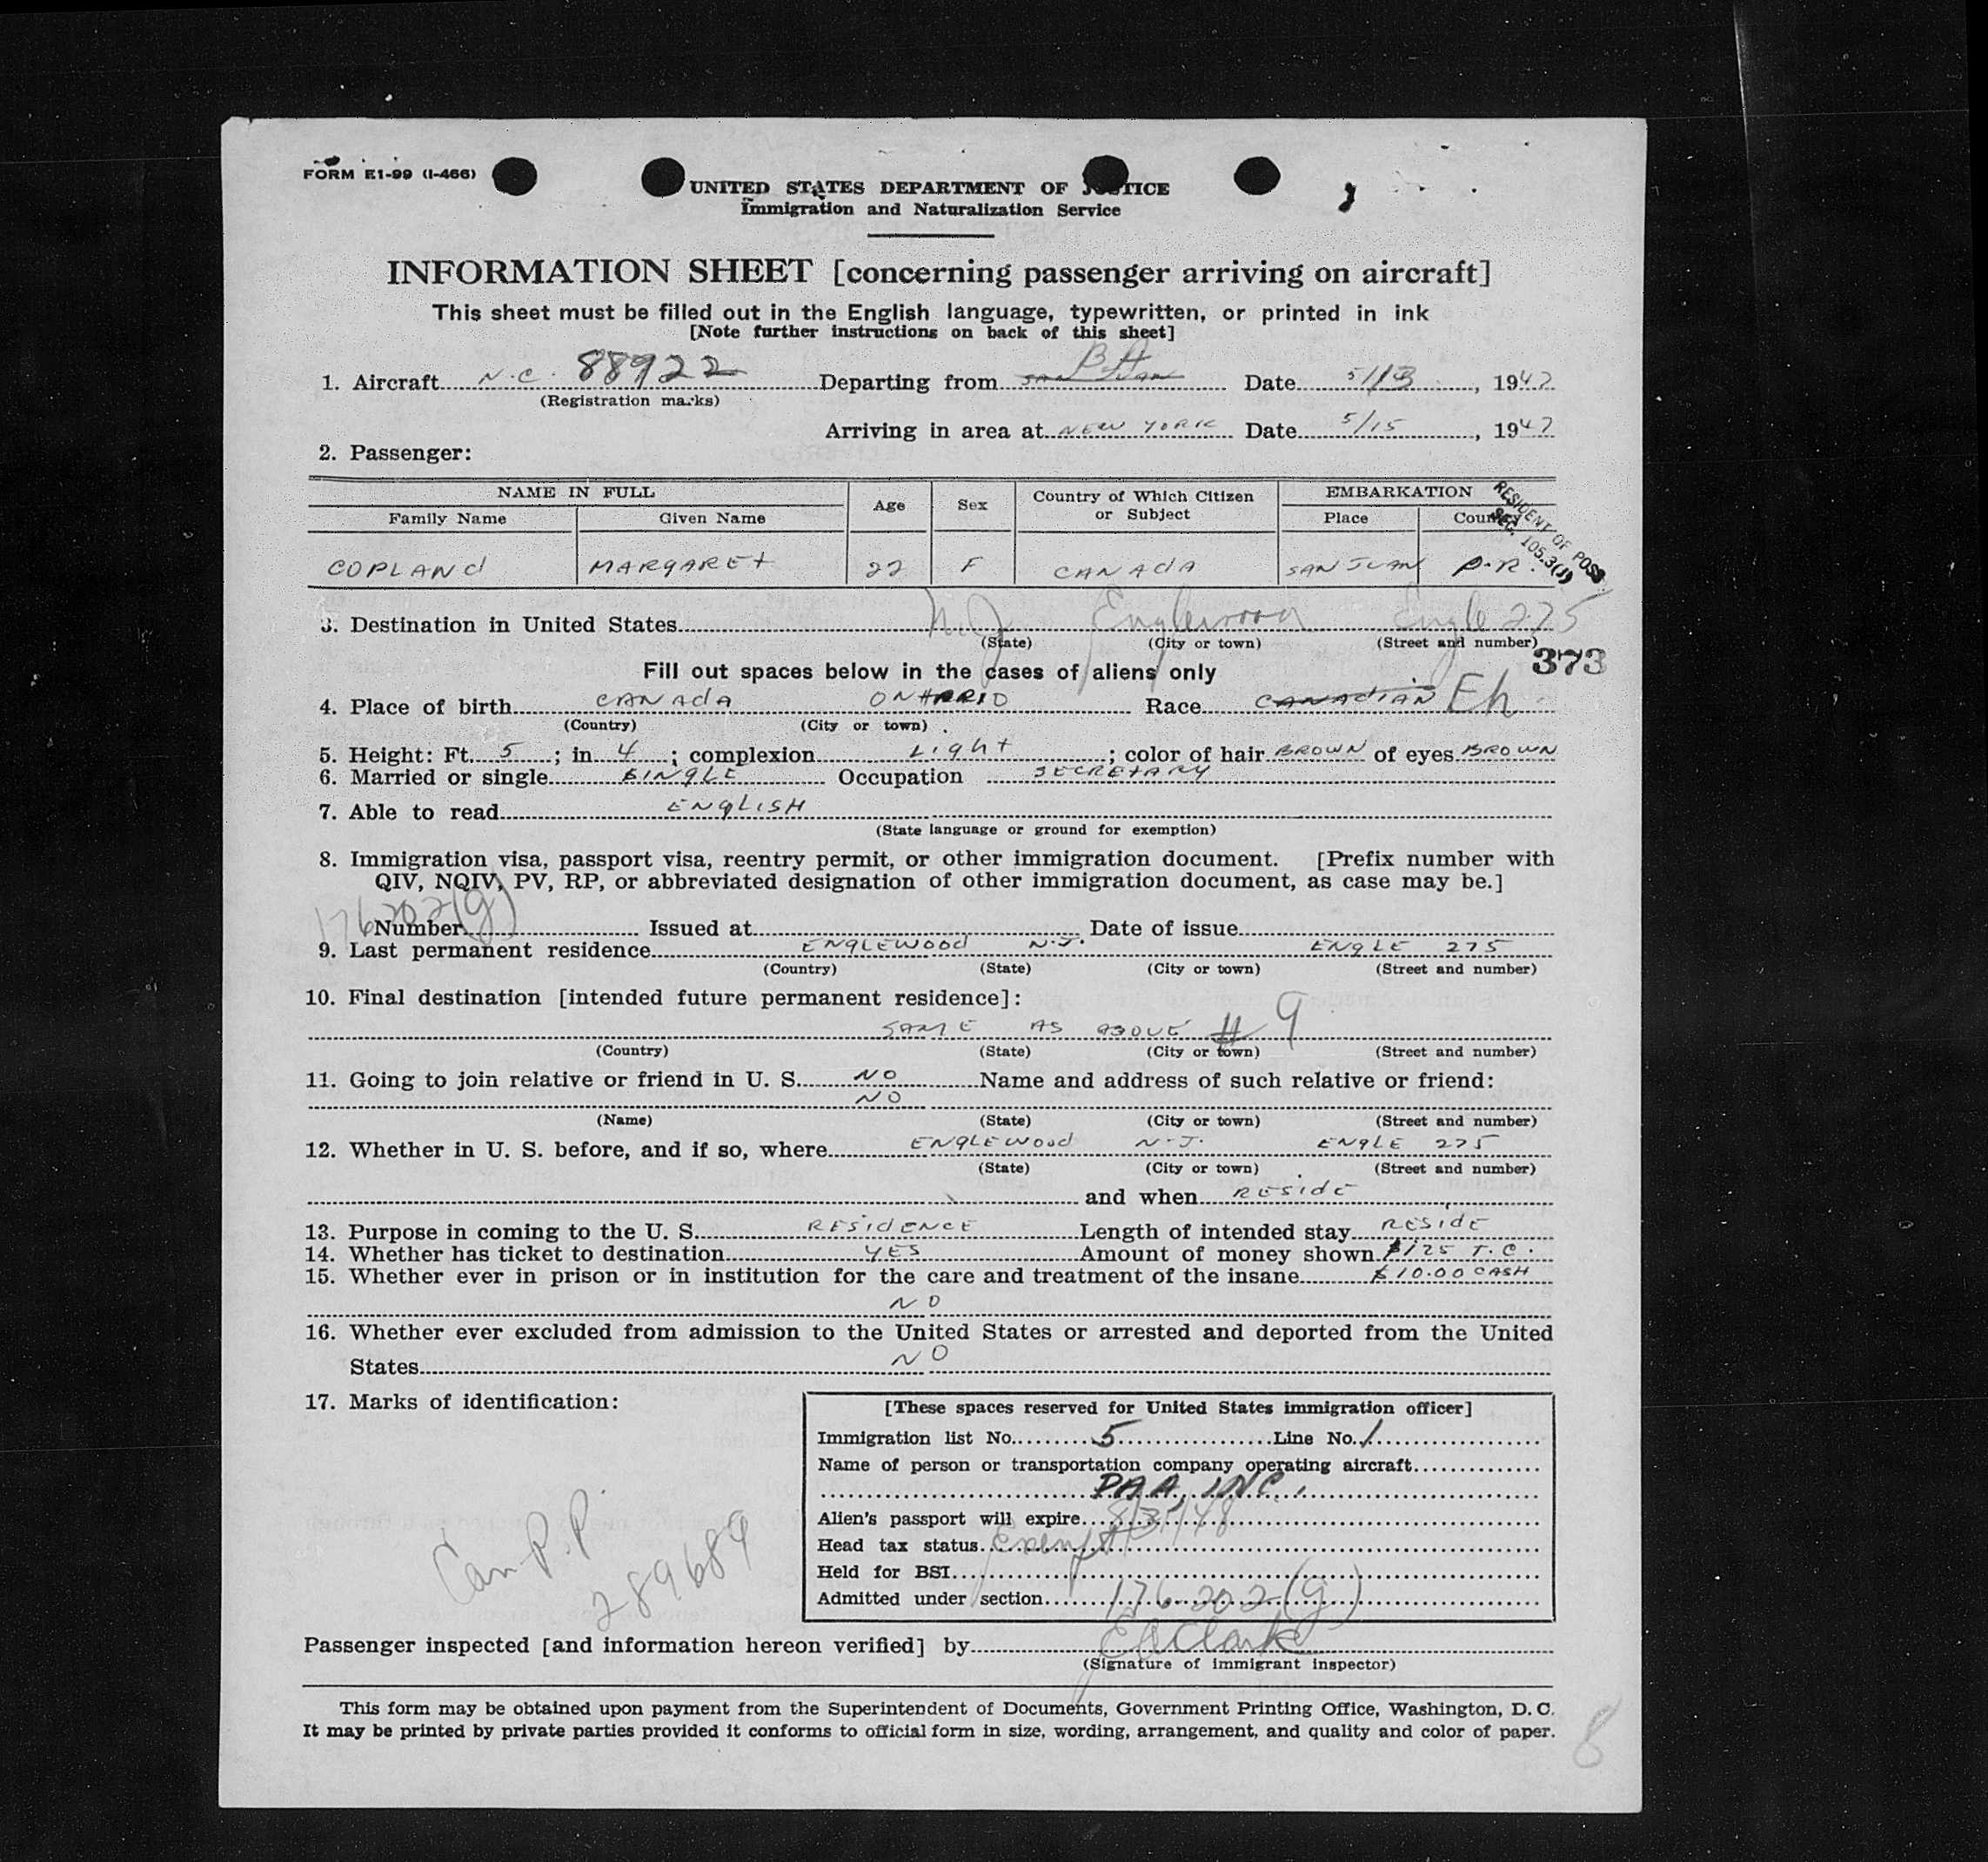 FORM E1-99 (I-466)
UNITED STATES DEPARTMENT OF JUSTICE
Immigration and Naturalization Service
INFORMATION SHEET [concerning passenger arriving on aircraft]
This sheet must be filled out in the English language, typewritten, or printed in ink
[Note further instructions on back of this sheet]
BA
1. Aircraft N.C. 88922 Departing from SAN JUAN Date 5/13, 1947
(Registration marks)
Arriving in area at NEW YORK Date 5/15, 1947
2. Passenger:
NAME IN FULL Age Sex Country of Which Citizen or Subject EMBARKATION
Family Name Given Name Place Country
RESIDENT OF POSS.
SEC. 105.3(J)
COPLANd MARGAREt 22 F CANAdA SAN JUAN P.R.
3. Destination in United States N.J. Englewood Engle 275
(State) (City or town) (Street and number)
373
Fill out spaces below in the cases of aliens only
4. Place of birth CANAdA ONtARIO Race CANAdiAN Eh
(Country) (City or town)
5. Height: Ft. 5; in 4; complexion Light; color of hair BROWN of eyes BROWN
6. Married or single SINGLE Occupation SECRETARY
7. Able to read ENGLISH
(State language or ground for exemption)
8. Immigration visa, passport visa, reentry permit, or other immigration document. [Prefix number with
QIV, NQIV, PV, RP, or abbreviated designation of other immigration document, as case may be.]
176.202(g)
Number Issued at Date of issue
9. Last permanent residence ENGLEWOOd N.J. ENGLE 275
(Country) (State) (City or town) (Street and number)
10. Final destination [intended future permanent residence]:
SAME AS ABOVE # 9
(Country) (State) (City or town) (Street and number)
11. Going to join relative or friend in U. S. NO Name and address of such relative or friend:
NO
(Name) (State) (City or town) (Street and number)
12. Whether in U. S. before, and if so, where ENGLEWOOd N.J. ENGLE 275
(State) (City or town) (Street and number)
and when RESidE
13. Purpose in coming to the U. S. RESidENCE Length of intended stay RESidE
14. Whether has ticket to destination YES Amount of money shown $125 T.C.
15. Whether ever in prison or in institution for the care and treatment of the insane $10.00 CASH
NO
16. Whether ever excluded from admission to the United States or arrested and deported from the United
States NO
17. Marks of identification:
Can P.P.
289684
[These spaces reserved for United States immigration officer]
Immigration list No. 5 Line No. 1
Name of person or transportation company operating aircraft
PAA, INC.
Alien's passport will expire 8/31/48
Head tax status Exempt
Held for BSI
Admitted under section 176.202(g)
Passenger inspected [and information hereon verified] by EA Clark
(Signature of immigrant inspector)
This form may be obtained upon payment from the Superintendent of Documents, Government Printing Office, Washington, D. C.
It may be printed by private parties provided it conforms to official form in size, wording, arrangement, and quality and color of paper.
8